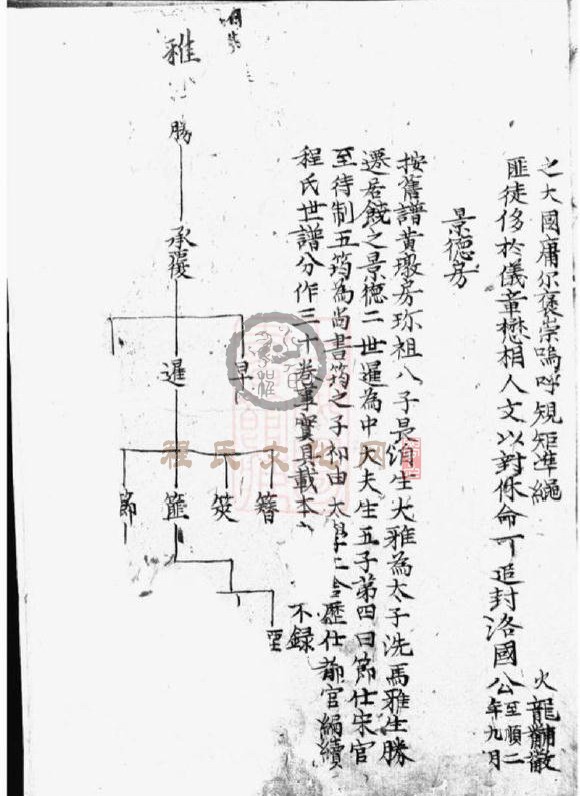 之大國庸尔褒崇嗚呼規矩準繩
匪徒侈於儀章楙相人文以對休命可追封洛國公
至順二年九月
火龍黼黻
景德房
按舊譜黄墩房珎祖八子長
生大雅為太子洗馬雅生勝
遷居饒之景德二世暹為中大夫生五子第四曰節仕宋官
至待制五筠為尚書筠之子
由太學
歷仕
官編續
程氏世譜分作三十卷事實具載本
不録
雅
勝
承
暹
早
簪
筴
節
程氏文化网